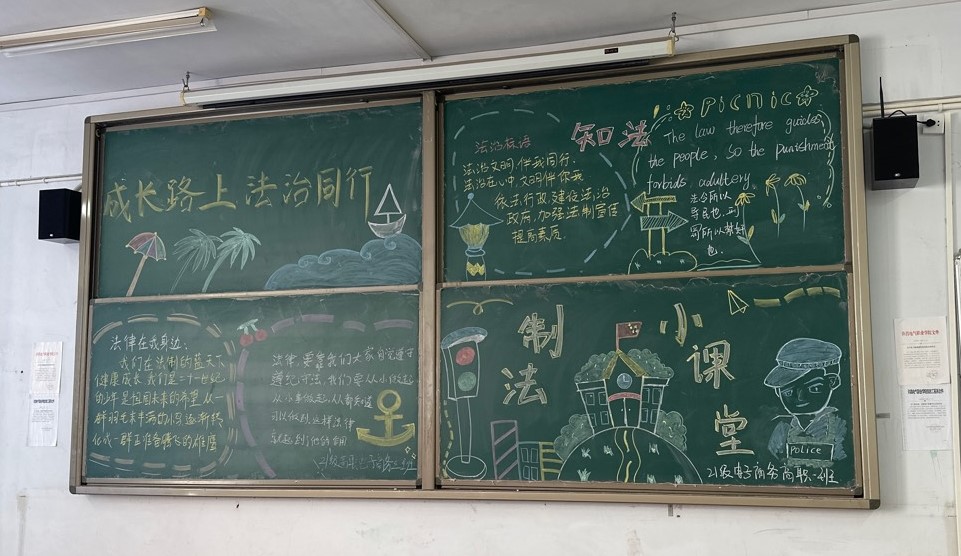 成长路上 法治同行
法治标语
法治文明,伴我同行.
法治在心中,文明伴你我
依法行政,建设法治
政府,加强法制宣传
提高素质.
知法
Picnic
The law therefore guides
the people, so the punishment
forbids adultery
法令所以
导民也,刑
罚所以禁奸
也.
法律在我身边:
我们在法制的蓝天下
健康成长,我们是二十一世纪
的少年是祖国未来的希望,从一
群羽毛未丰满的小鸟逐渐转
化成一群正准备腾飞的雄鹰
法律,要靠我们大家自觉遵守
遵纪守法,我们要从小做起
从小事做起,人人都知道
可以做到,这样法律
就起到了他的作用
制法
小课堂
Police
21级电子商务高职-班